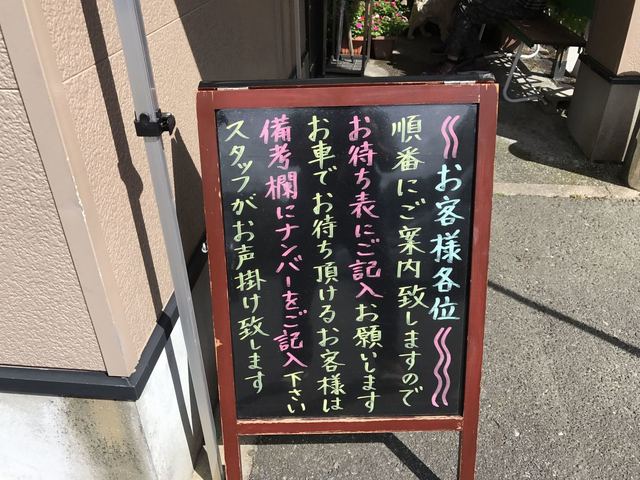 お客様各位
順番にご案内致しますので
お待ち表にご記入お願いします
お車でお待ち頂けるお客様は
備考欄にナンバーをご記入下さい
スタッフがお声掛け致します